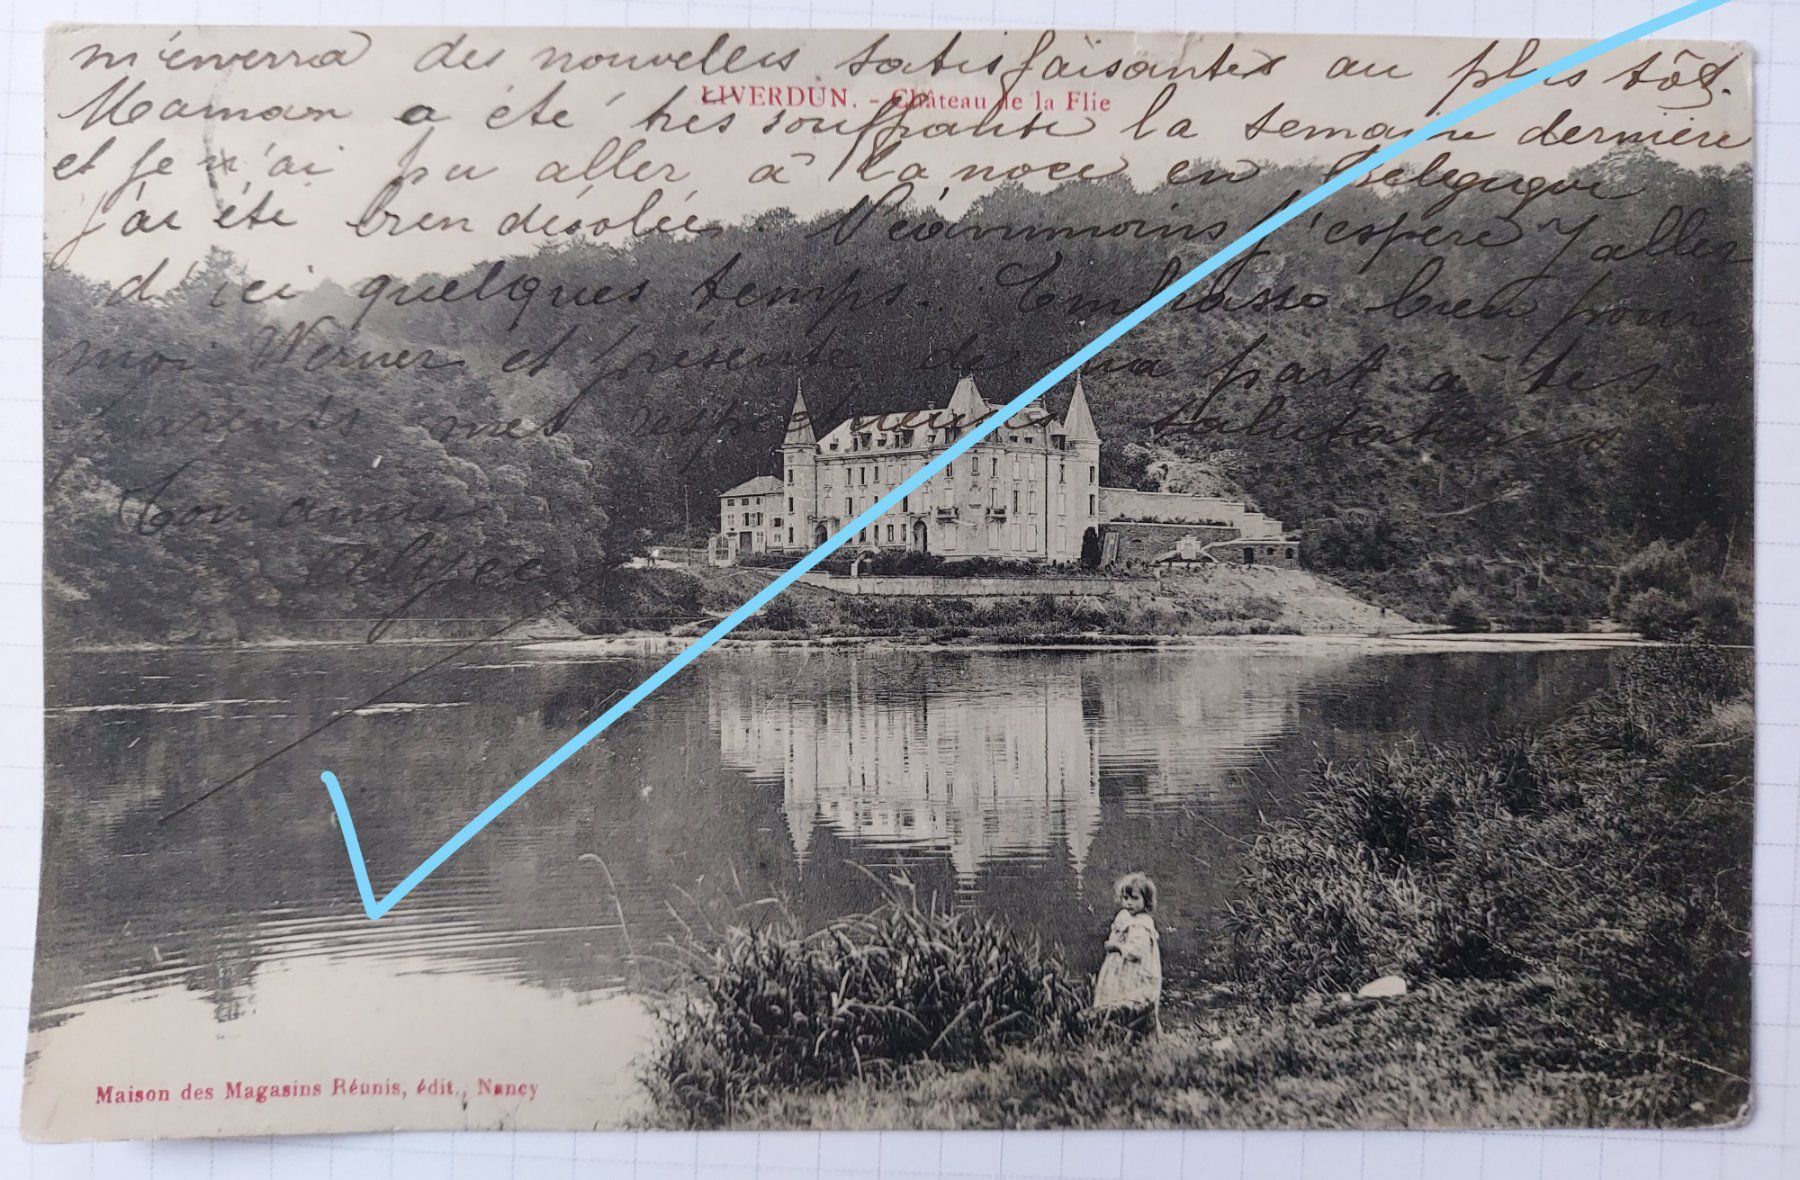 m'enverra des nouvelles satisfaisantes au plus tôt.
LIVERDUN. - Château de la Flie
Maman a été très souffrante la semaine dernière
et je n'ai pu aller à la noce en Belgique
j'ai été bien désolée. Néammoins j'espère y aller
d'ici quelques temps. Embrasse bien pour
moi Werner et présente de ma part à tes
parents mes respectueuses salutations
Ton amie
Maison des Magasins Réunis, édit., Nancy